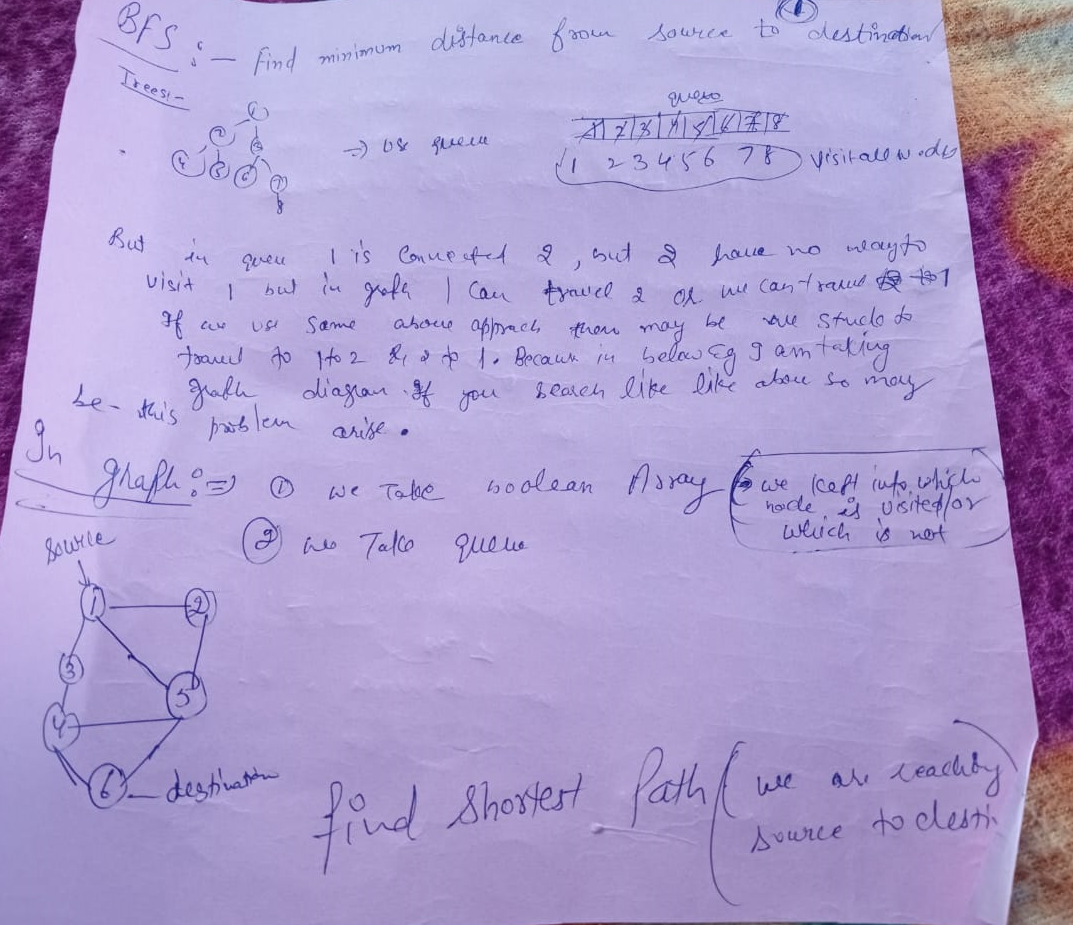 1
BFS :- find minimum distance from source to destination
Trees:-
queue
1 2 3 4 5 6 7 8
1
2 3
4 5 6 7
8
=> use queue
1 2 3 4 5 6 7 8 visit all nodes
But in queue 1 is connected 2, but 2 have no way to
visit 1 but in graph 1 can travel 2 or we can travel to 1
If we use same above approach then may be we stuck to
travel to 1 to 2 & 2 to 1. Because in below eg I am taking
graph diagram. If you search like like above so may
be - this problem arise.
In graph :=> ① we Take boolean Array
we kept info which
node is visited/or
which is not
② we Take queue
source
1 2
3
5
4
6 - destination
find shortest Path (we are reach by
source to desti